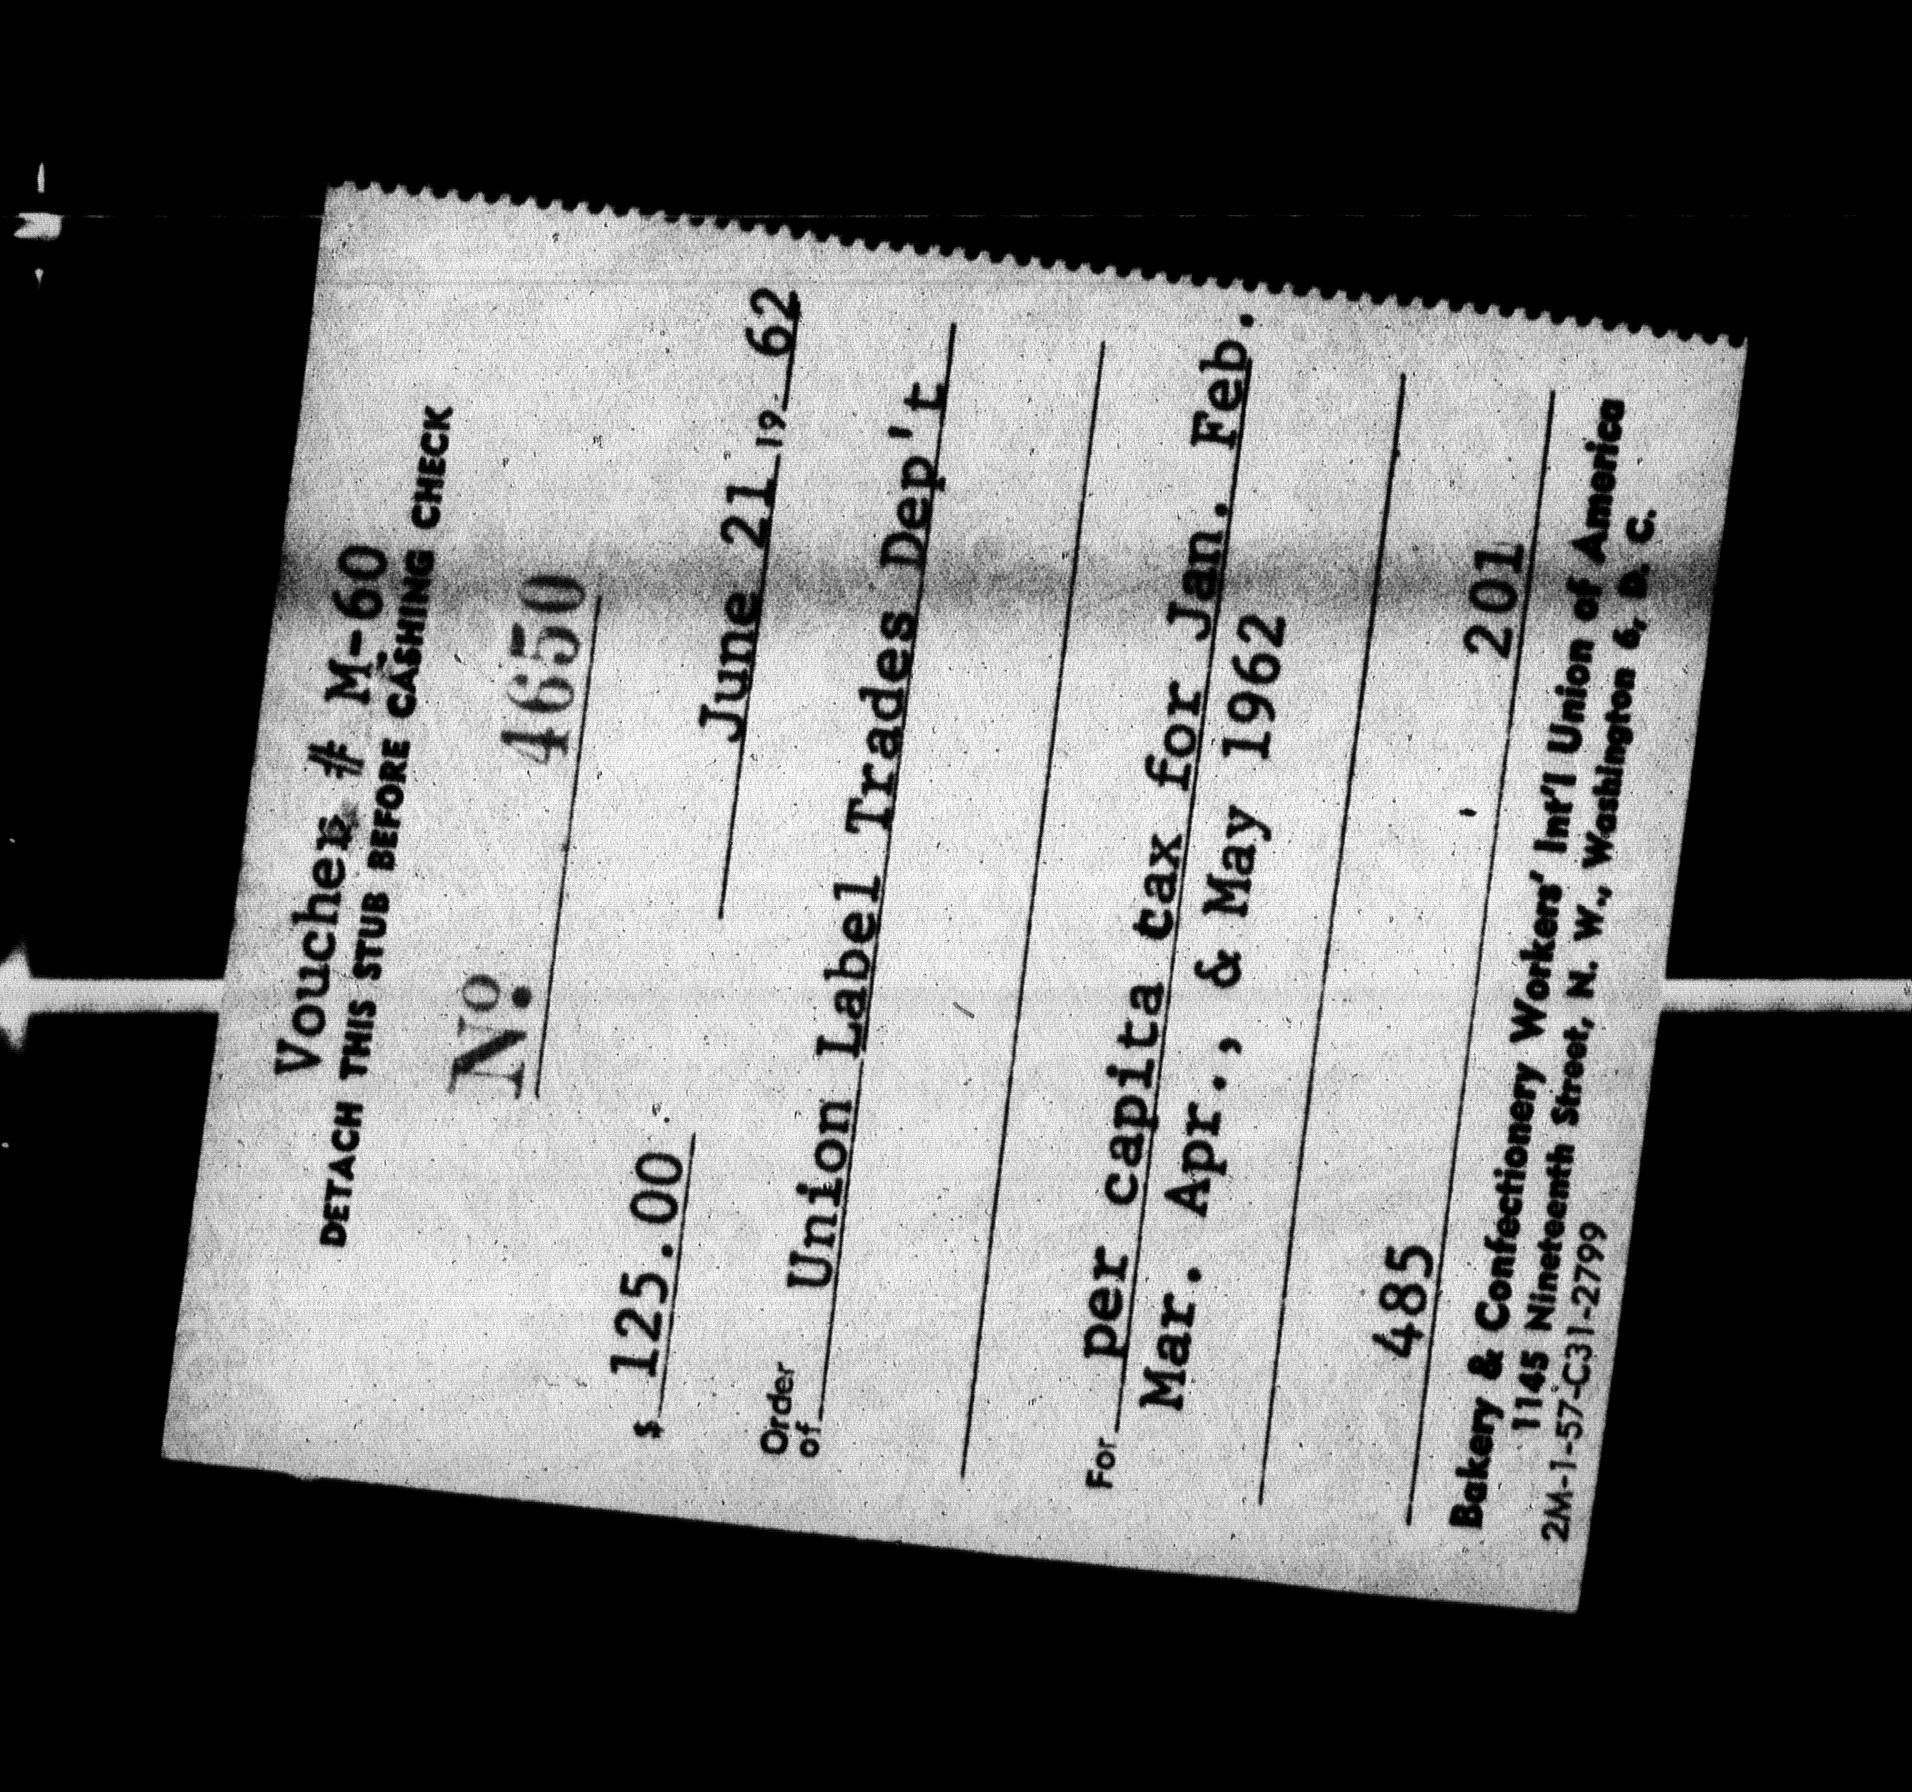 Voucher # M-60
DETACH THIS STUB BEFORE CASHING CHECK
No. 4650
$ 125.00
June 21 19 62
Order of Union Label Trades Dep't
For per capita tax for Jan. Feb.
Mar. Apr., & May 1962
485 201
Bakery & Confectionery Workers' Int'l Union of America
1145 Nineteenth Street, N. W., Washington 6, D. C.
2M-1-57-C31-2799